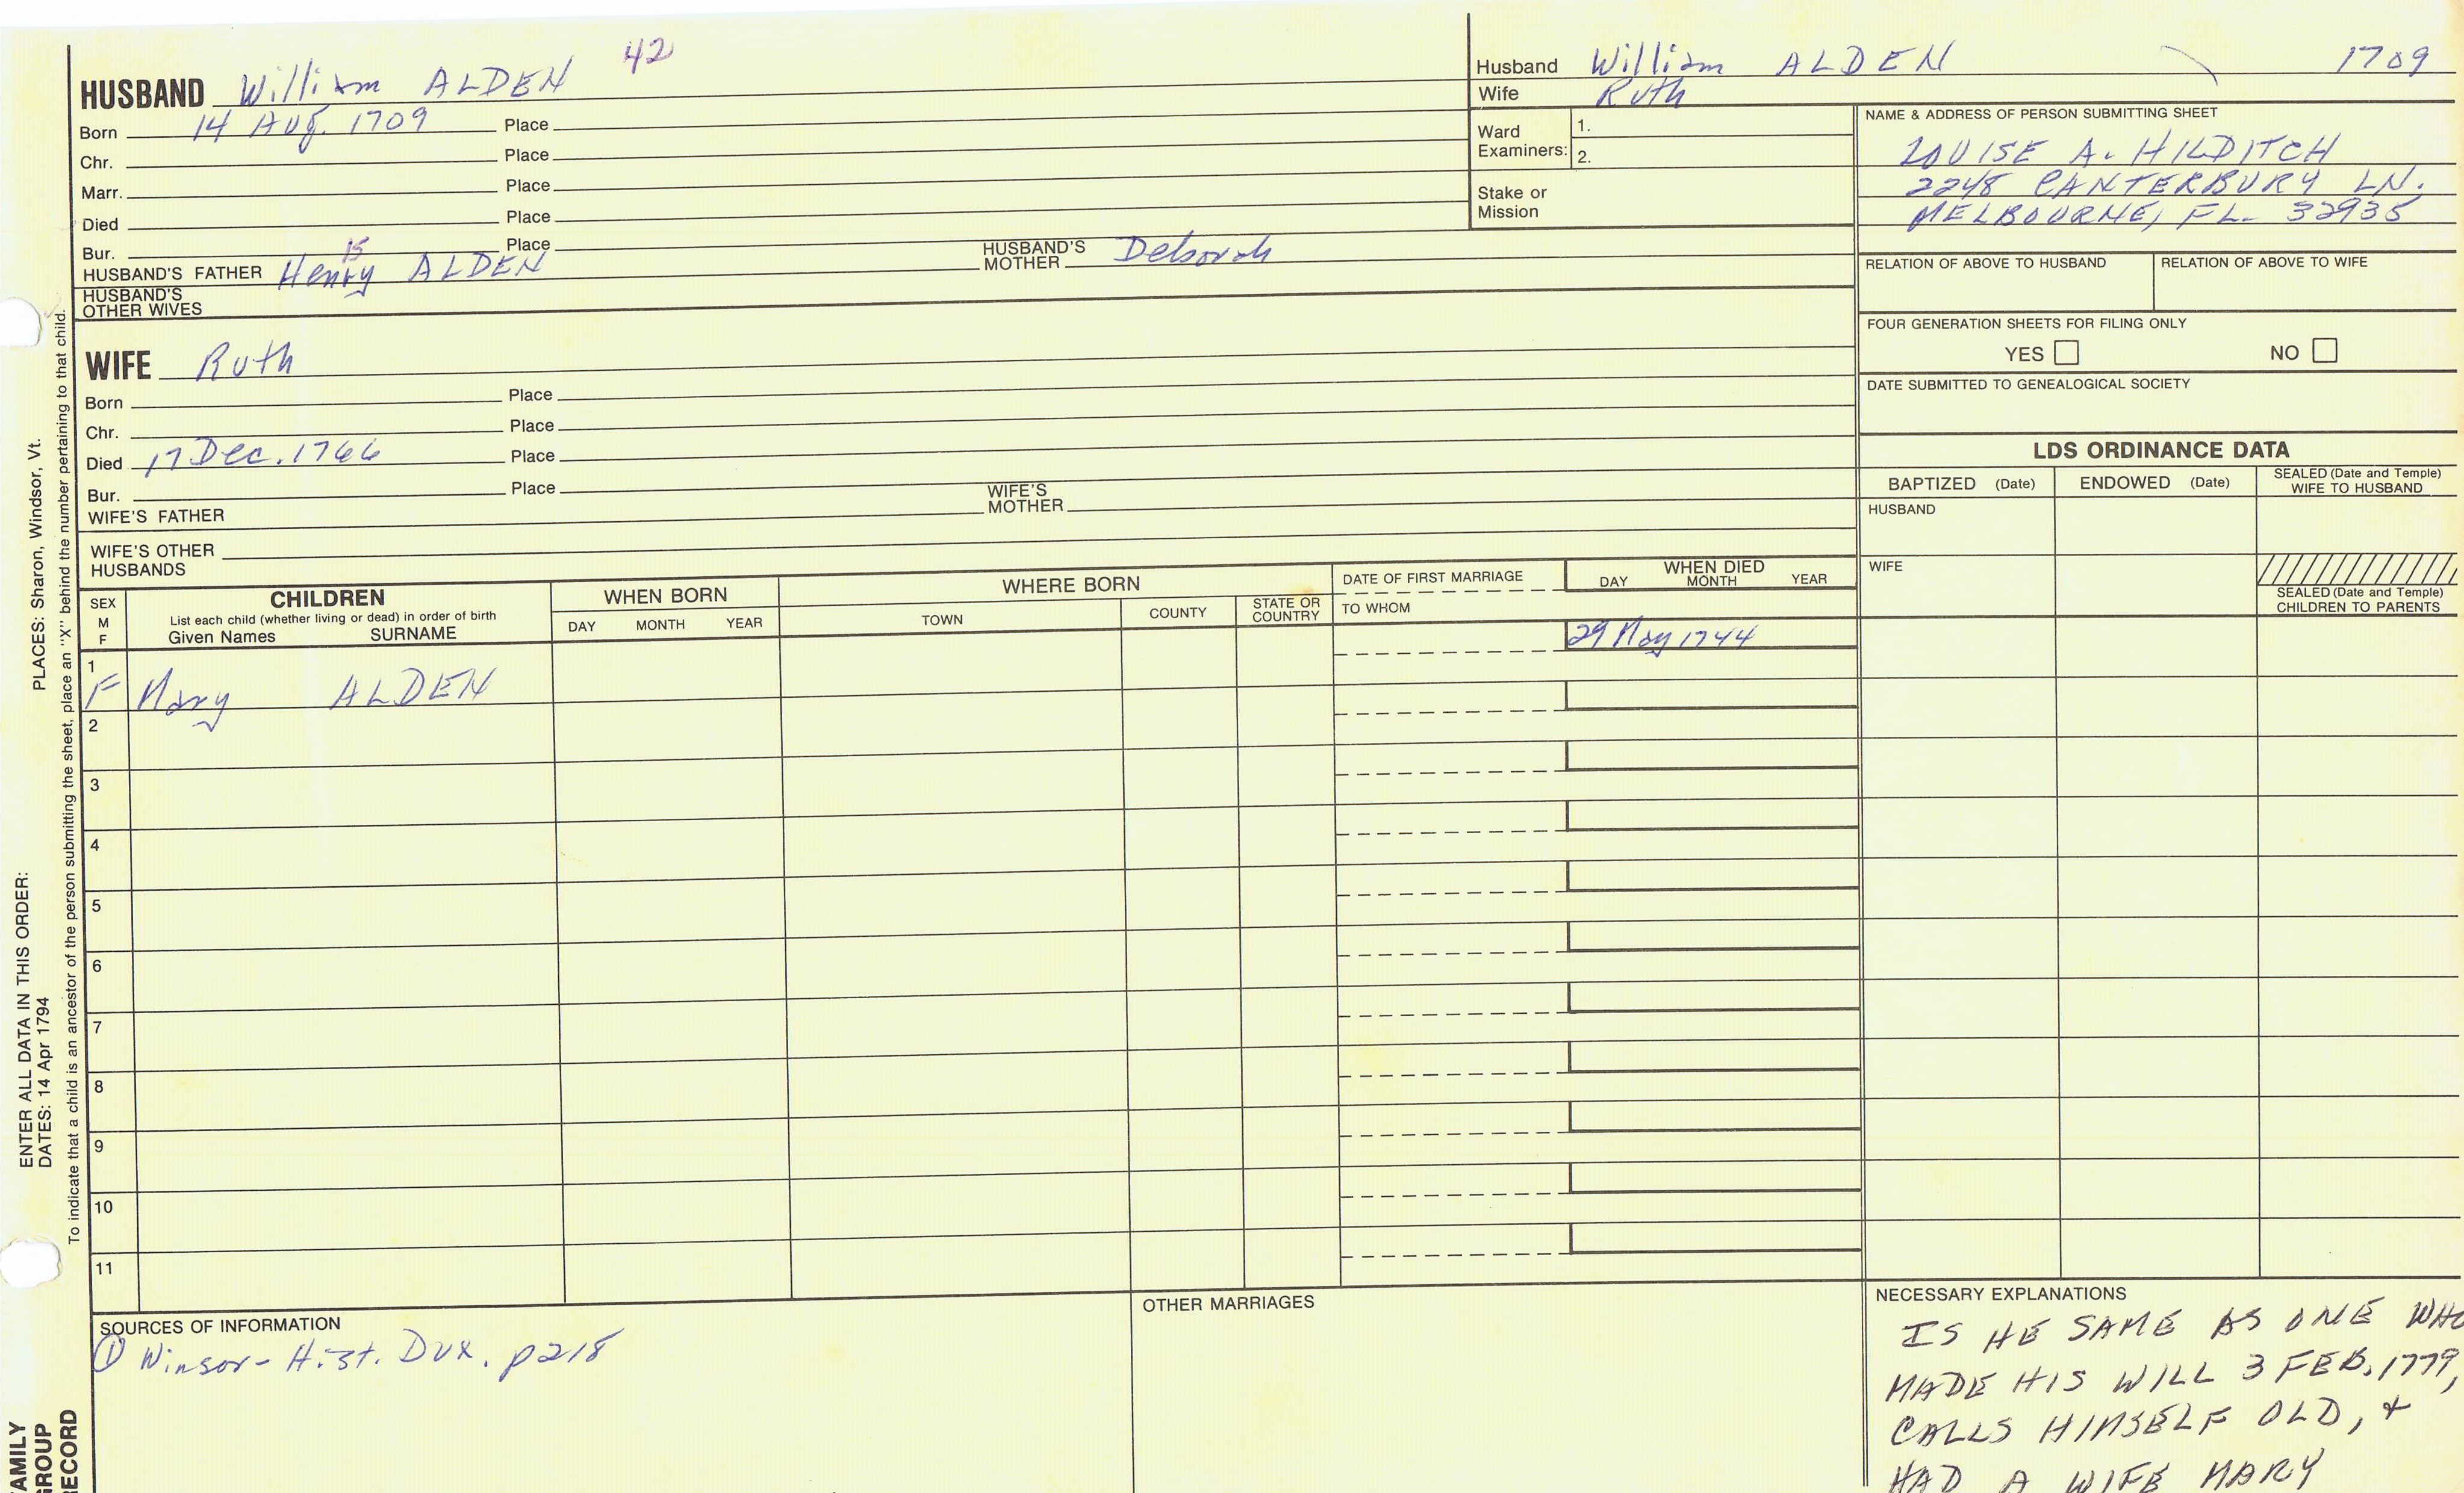 HUSBAND William ALDEN 42
Born 14 Aug. 1709 Place
Chr. Place
Marr. Place
Died Place
Bur. Place
HUSBAND'S FATHER Henry ALDEN 15 HUSBAND'S MOTHER Deborah
HUSBAND'S OTHER WIVES
WIFE Ruth
Born Place
Chr. Place
Died 17 Dec. 1766 Place
Bur. Place
WIFE'S FATHER WIFE'S MOTHER
WIFE'S OTHER HUSBANDS
Husband William ALDEN 1709
Wife Ruth
Ward Examiners: 1.
2.
Stake or Mission
NAME & ADDRESS OF PERSON SUBMITTING SHEET
LOUISE A. HILDITCH
2248 CANTERBURY LN.
MELBOURNE, FL. 32935
RELATION OF ABOVE TO HUSBAND RELATION OF ABOVE TO WIFE
FOUR GENERATION SHEETS FOR FILING ONLY
YES NO
DATE SUBMITTED TO GENEALOGICAL SOCIETY
LDS ORDINANCE DATA
BAPTIZED (Date) ENDOWED (Date) SEALED (Date and Temple) WIFE TO HUSBAND
HUSBAND
WIFE
SEALED (Date and Temple) CHILDREN TO PARENTS
SEX M F
CHILDREN
List each child (whether living or dead) in order of birth
Given Names SURNAME
WHEN BORN
DAY MONTH YEAR
WHERE BORN
TOWN COUNTY STATE OR COUNTRY
DATE OF FIRST MARRIAGE
TO WHOM
WHEN DIED
DAY MONTH YEAR
1 F Mary ALDEN 29 May 1744
2
3
4
5
6
7
8
9
10
11
SOURCES OF INFORMATION
① Winsor - Hist. Dux. p218
OTHER MARRIAGES
NECESSARY EXPLANATIONS
IS HE SAME AS ONE WHO
MADE HIS WILL 3 FEB. 1779,
CALLS HIMSELF OLD, +
HAD A WIFE MARY
ENTER ALL DATA IN THIS ORDER:
DATES: 14 Apr 1794 PLACES: Sharon, Windsor, Vt.
To indicate that a child is an ancestor of the person submitting the sheet, place an "X" behind the number pertaining to that child.
FAMILY
GROUP
RECORD